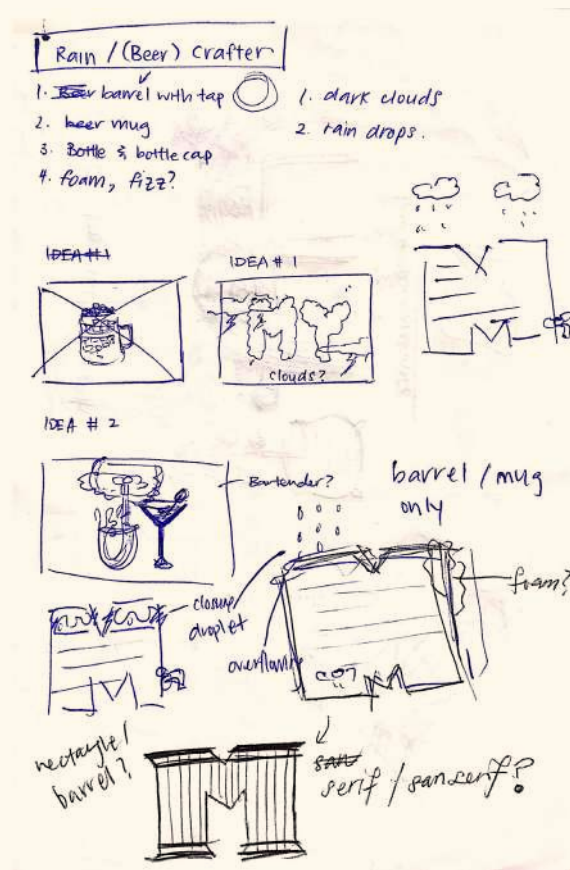 Rain / (Beer) Crafter
1. Beer barrel with tap
2. beer mug
3. Bottle & bottle cap
4. foam, fizz?
1. dark clouds
2. rain drops.
IDEA #1
IDEA # 1
clouds?
IDEA # 2
Bartender?
barrel / mug
only
foam?
closure
droplet
overflowing
rectangle /
barrel?
san
serif / sanserif?